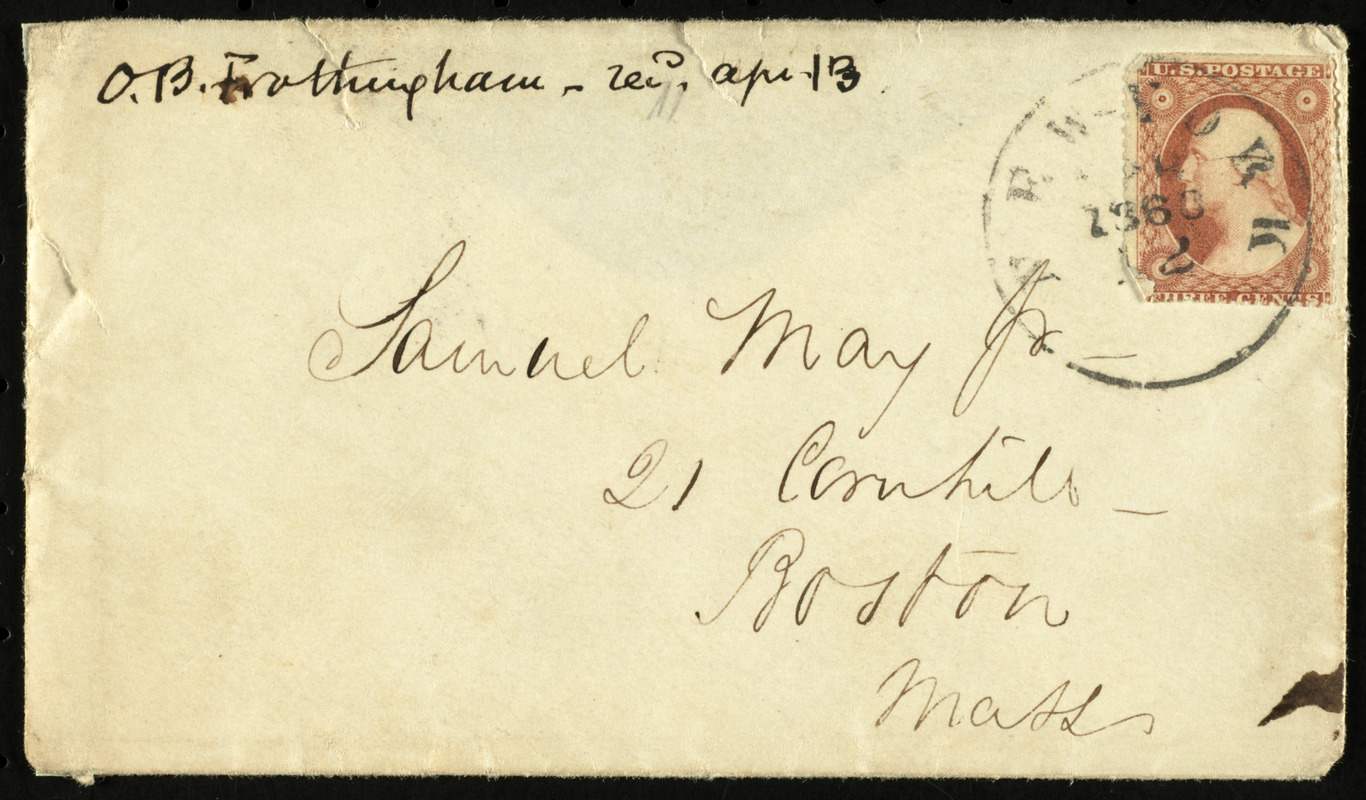 O. B. Frothingham - rec'd. apr. 13.
U.S. POSTAGE
NEW-YORK
1860
12
THREE CENTS
Samuel May Jr -
21 Cornhill -
Boston
Mass